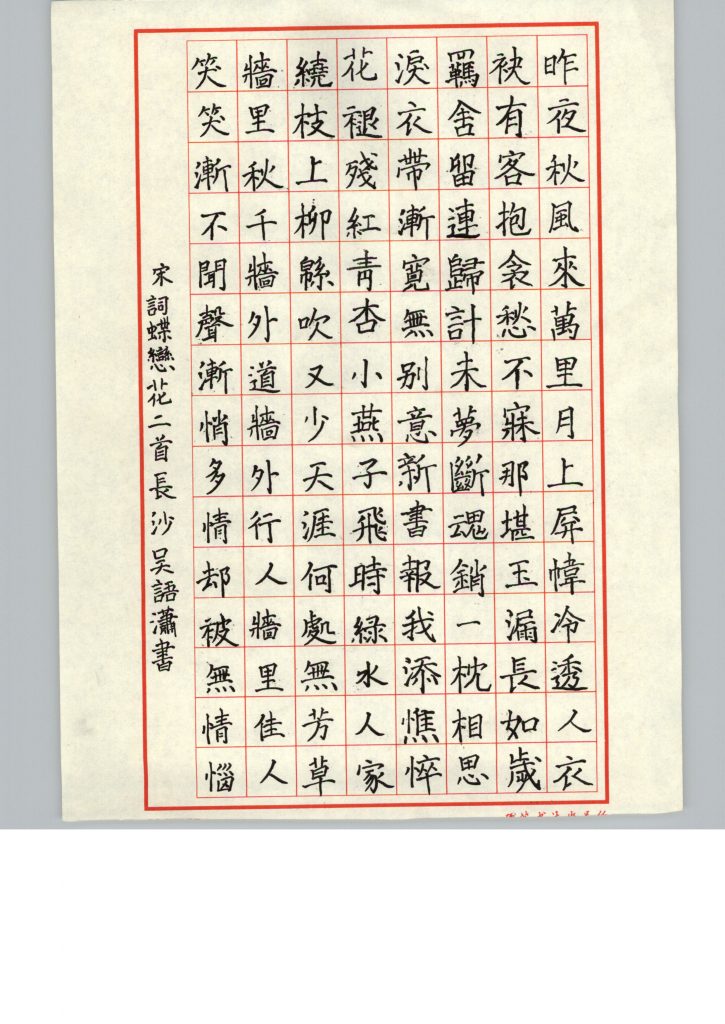 昨夜秋風來萬里月上屏幃冷透人衣
袂有客抱衾愁不寐那堪玉漏長如歲
羈舍留連歸計未夢斷魂銷一枕相思
淚衣帶漸寬無别意新書報我添憔悴
花褪殘紅青杏小燕子飛時綠水人家
繞枝上柳緜吹又少天涯何處無芳草
牆里秋千牆外道牆外行人牆里佳人
笑笑漸不聞聲漸悄多情却被無情惱
宋詞蝶戀花二首長沙吳語瀟書